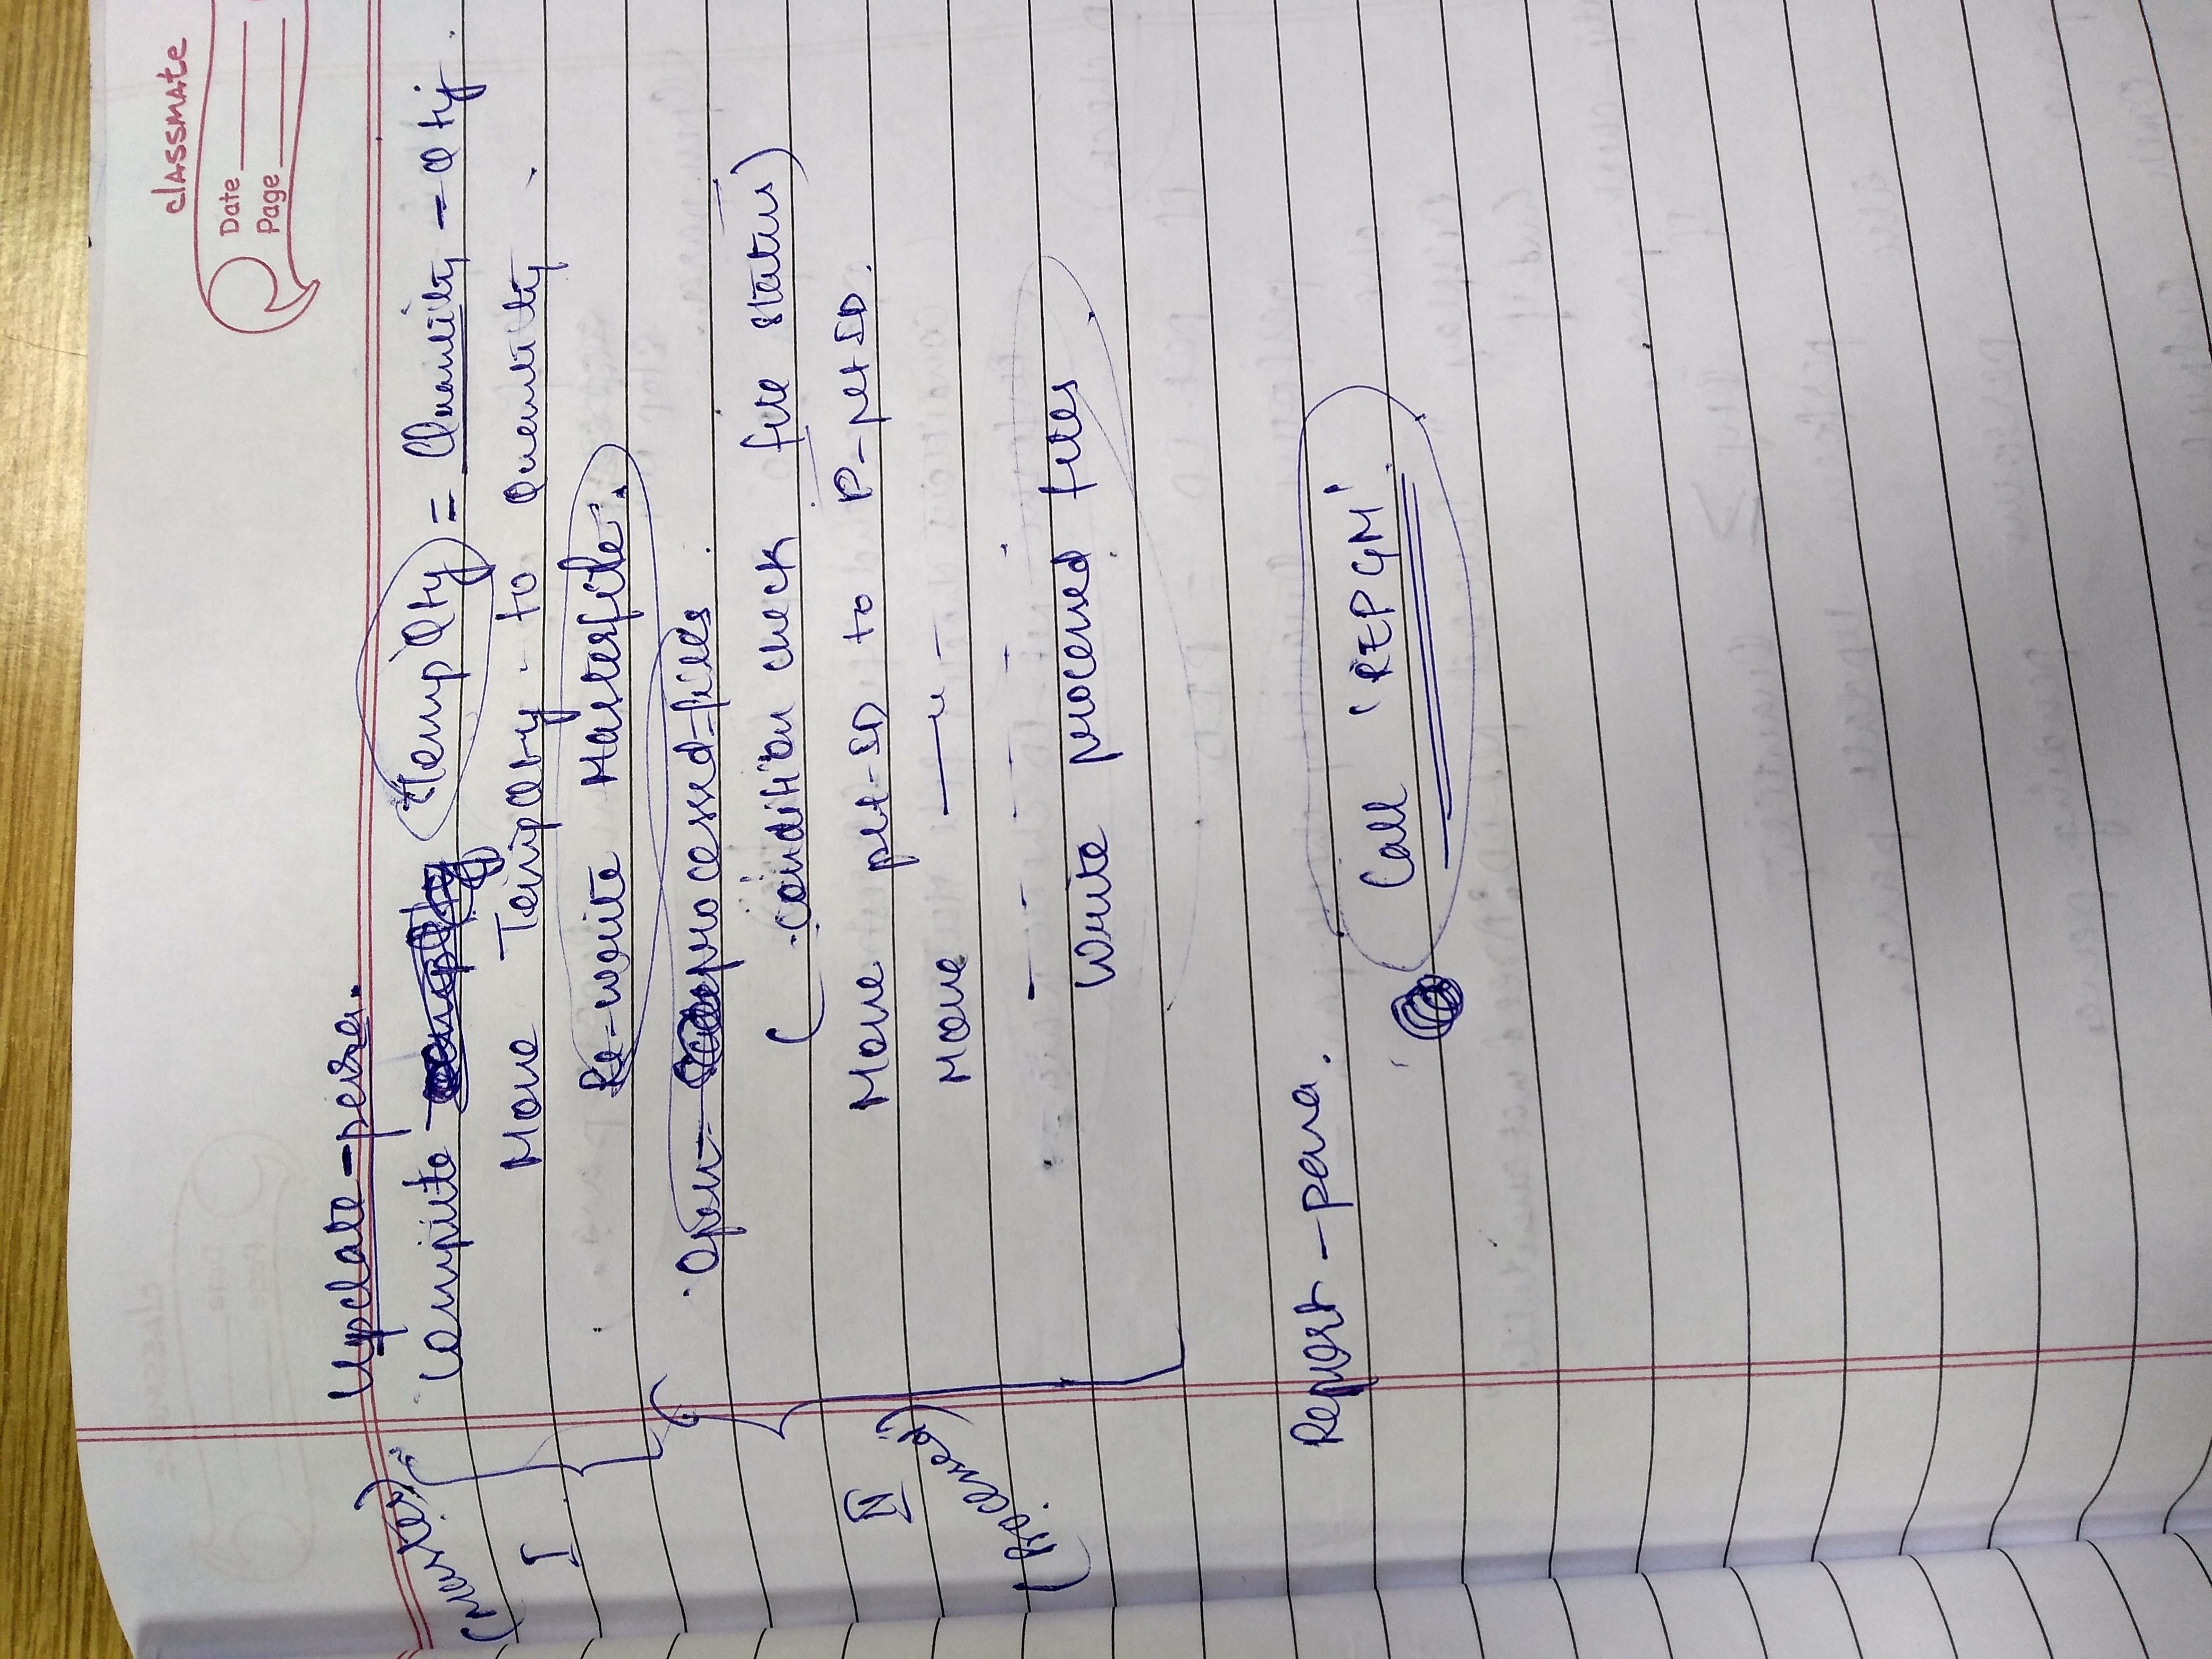 classmate
Date
Page
Update-para.
(Master)
Compute TempQty = Quantity - Qty.
I
Move TempQty to Quantity.
Re-write Masterfile.
Open processed-files.
(condition check file status)
II
Move pet-ID to P-petID.
(Processed)
Move —〃—
— - - - -
Write processed files
Report-para.
Call 'REPGM'.